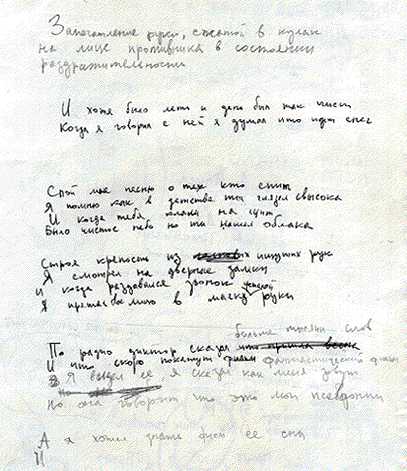 Запечатление руки, сжатой в кулак
на лице противника в состоянии
раздражительности
И хотя было лето и день был так чист
Когда я говорил с ней я думал что идёт снег
Спой мне песню о тех кто спит
Я помню как в детстве ты глядел свысока
И когда тебя клали на щит
Было чистое небо но ты нашел облака
Строя крепость из пишущих рук
Я смотрел на дверные замки
И когда раздавался звонок
Я прятал лицо в маску женской руки
больше тысячи слов
По радио диктор сказал что пришла весна
И что скоро покажут фильм фантастический фильм
Я её я сказал как меня зовут
Но она говорит что это мой псевдоним
А я хотел знать её сны
И